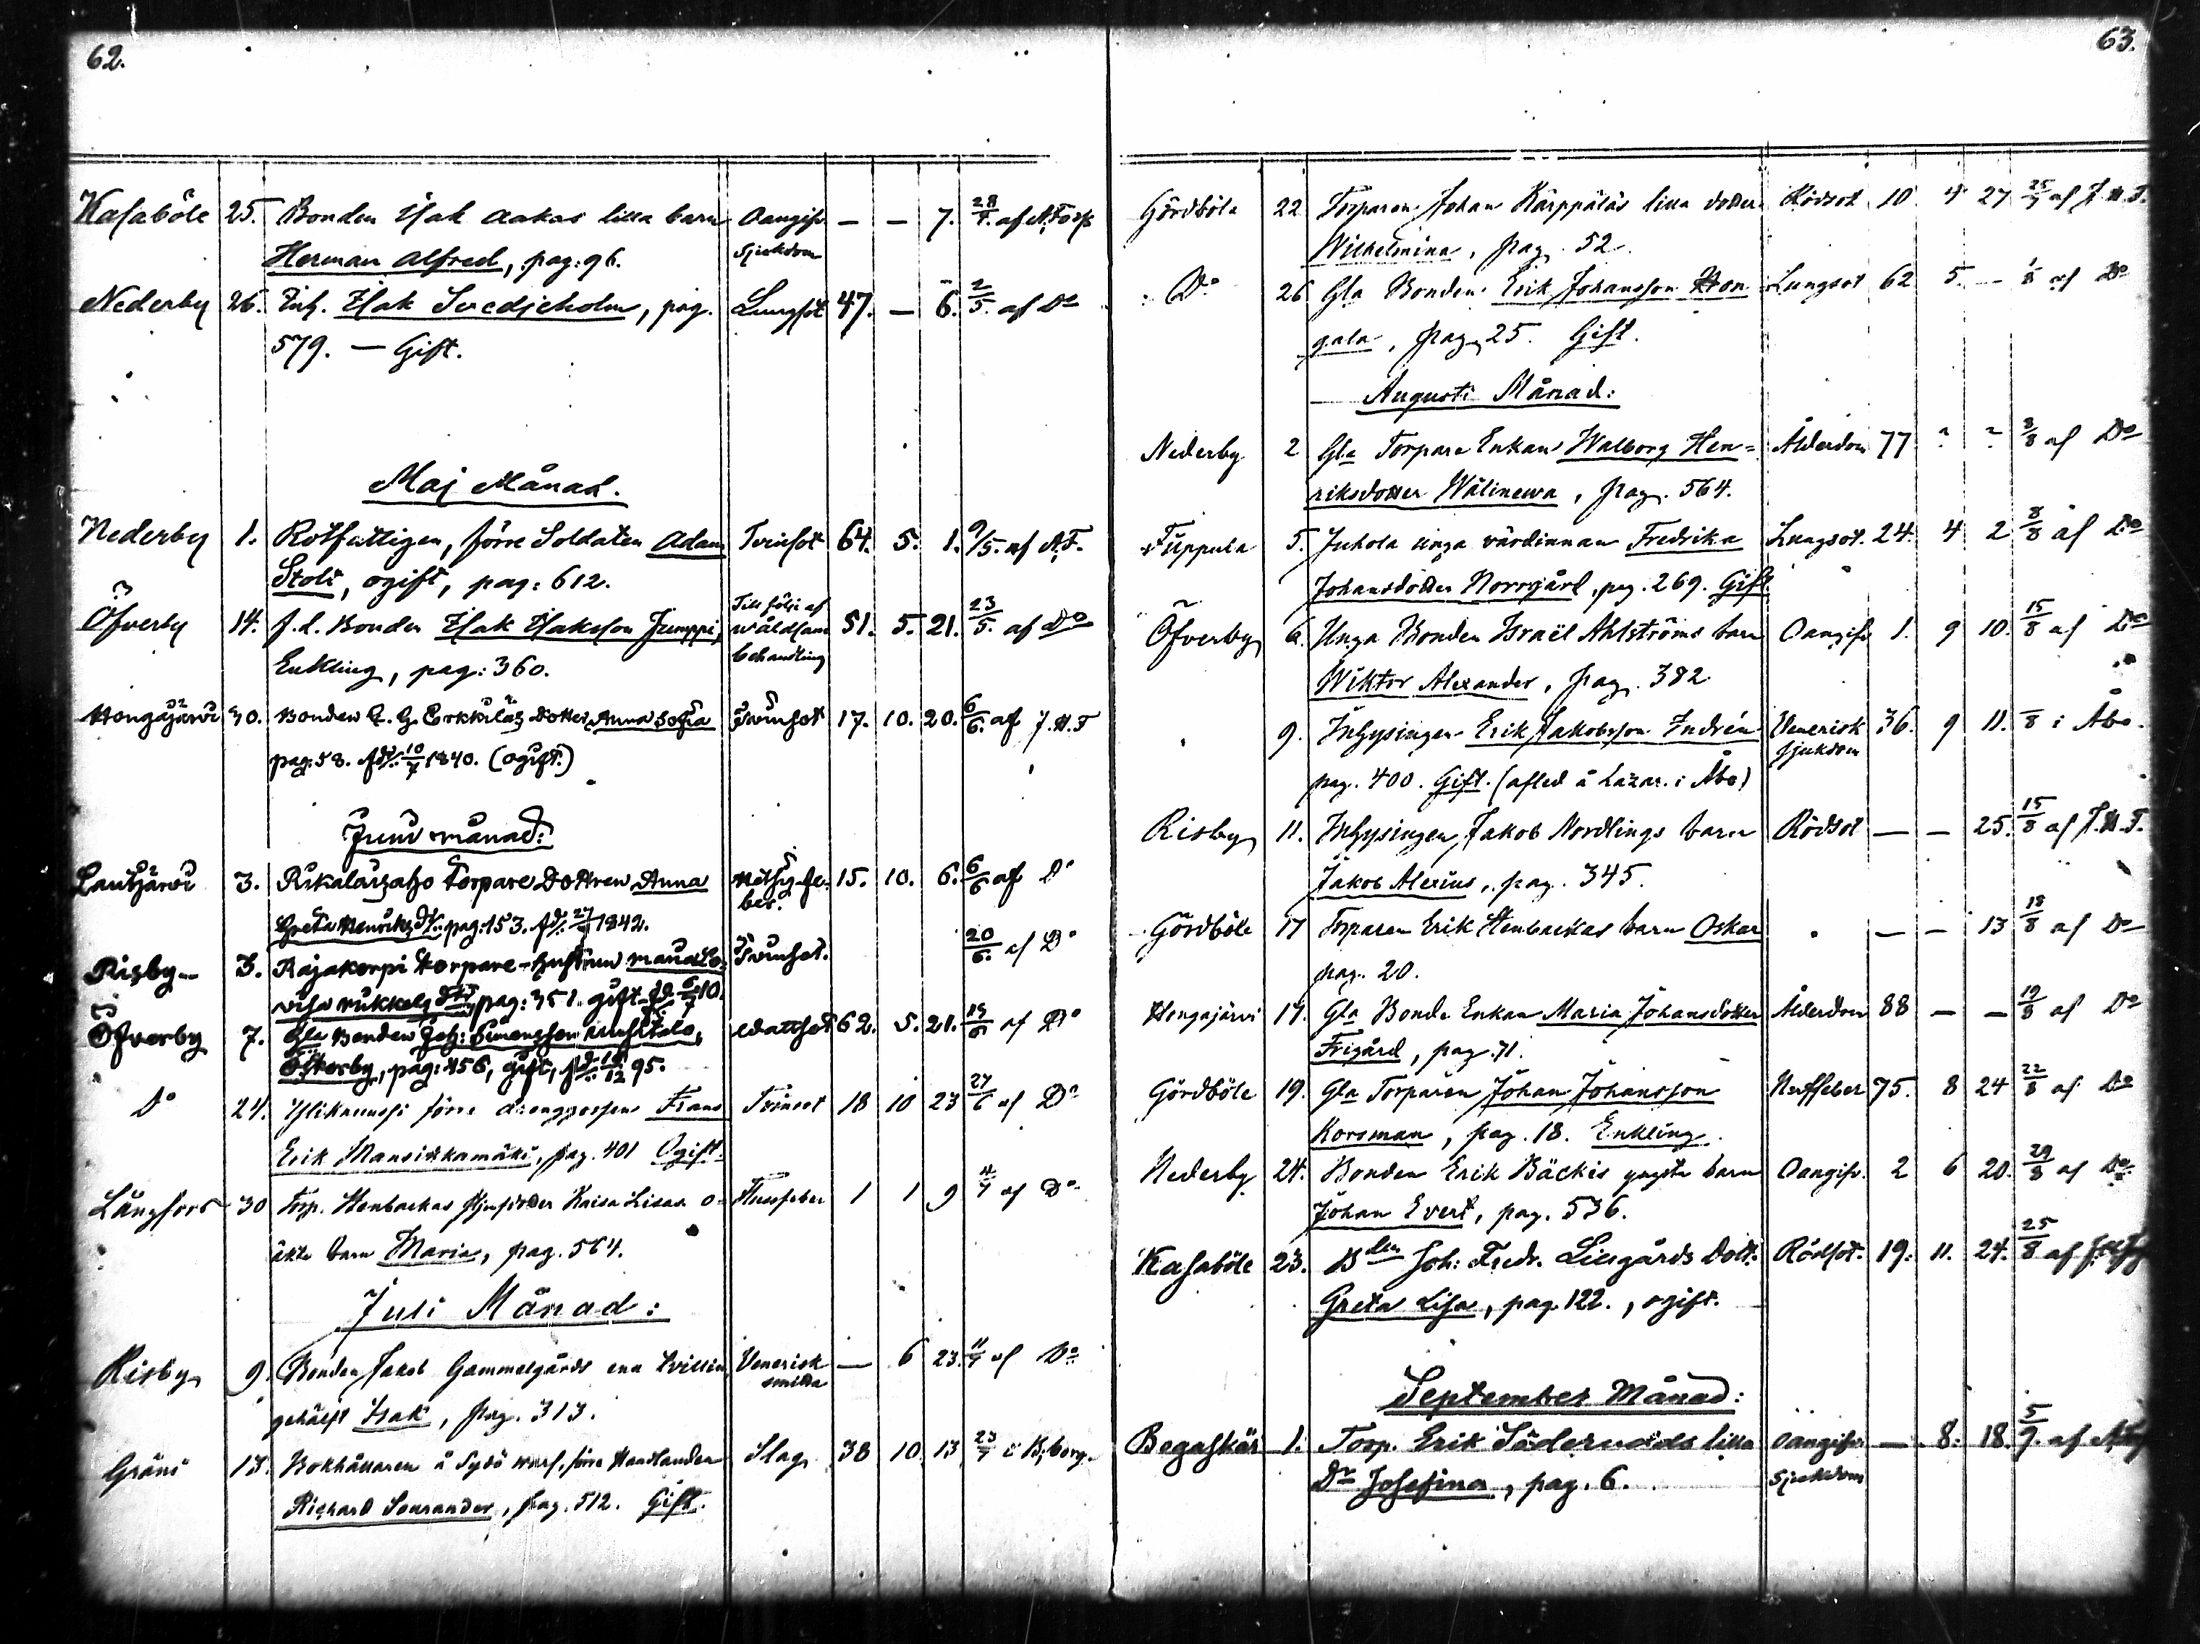 62.
Kasaböle 25. Bonden Isak Aakas lilla barn Oangifv — — 7. 28/4. af N. Forss
Herman Alfred, pag: 96. Sjukdom
Nederby 26. Inh. Isak Svedjeholm, pag. Lungsot 47. — 6. 2/5. af Do
579. — Gift.
Maj Månad.
Nederby 1. Rotfattigen, förre Soldaten Adam Tvinsot 64. 5. 1. 9/5. af N.F.
Stolt, ogift, pag: 612.
Öfverby 14. f.d. Bonden Isak Isaksson Jumppi, Till följe af våldsam behandling 51. 5. 21. 23/5. af Do
Enkling, pag: 360.
Hongajärvi 30. Bonden Erkkiläs dotter Anna Sofia Tvinsot 17. 10. 20. 6/6. af J.H.T
pag: 58. född 10/7 1840. (ogift.)
Juni månad:
Lautjärvi 3. Torpare Dottren Anna feber. 15. 10. 6. 6/6 af Do
Greta Henriksdtr. pag: 153. född 27/7 1842.
Risby 3. Rajakorpi torpare-hustrun Maria Lo- Tvinsot. 20/6. af Do
visa Mikkelsdtr, pag: 351. gift
Öfverby 7. Gla Bonden Joh: Simonsson Wattsot 62. 5. 21. 19/6 af Do
pag: 456, gift, född 95.
Do 24. förre drenggossen Frans Tvinsot 18 10 23 27/6 af Do
Erik Mansikkamäki, pag. 401 Ogift.
Långfors 30 Torp. Stenbackas Kaisa Lisas o- Flussfeber 1 1 9 4/7 af Do
äkta barn Maria, pag. 564.
Juli Månad:
Risby 9. Bonden Jakob Gammelgårds ena tvillin Venerisk smitta — 6 23. 11/7 af Do
gehälft Isak, pag. 313.
Gräni 13. Bokhållaren å förre Handlanden Slag 38 10 13 23/7 i B:borg.
Richard Sourander, pag. 512. Gift.
63.
Gördböle 22 Torparen Johan Kärppäläs lilla dotter Rödsot 10 4 27 25/7 af J.H.T.
Wilhelmina, pag. 52.
Do 26 Gla Bonden Erik Johansson Hon- Lungsot 62 5 — 1/8 af Do
gala, pag. 25. Gift.
Augusti Månad:
Nederby 2 Gla Torpare Enkan Walborg Hen- Ålderdom 77 ? ? 8/8 af Do
riksdotter Wälinewa, pag. 564.
Tuppula 5. Juhola unga värdinnan Fredrika Lungsot. 24. 4 2 8/8 af Do
Johansdotter Norrgård, pag. 269. Gift.
Öfverby 6. Unga Bonden Israël Ahlströms barn Oangifv. 1. 9 10. 15/8 af Do
Wiktor Alexander, pag. 382
9. Inhysingen Erik Jakobsson Indrén Venerisk sjukdom 36. 9 11. /8 i Åbo.
pag. 400. Gift. (afled å Lazar. i Åbo)
Risby 11. Inhysingen Jakob Nordlings barn Rödsot — — 25. 15/8 af J.H.T.
Jakob Alexius, pag. 345.
Gördböle 17 Torparen Erik Stenbackas barn Oskar — — 13 18/8 af Do
pag. 20.
Hongajärvi 17. Gla Bonde Enkan Maria Johansdotter Ålderdom 88 — — 19/8 af Do
Frigård, pag. 71.
Gördböle 19. Gla Torparen Johan Johansson Nerffeber 75. 8 24 22/8 af Do
Korsman, pag. 18. Enkling.
Nederby 24. Bonden Erik Bäckis yngsta barn Oangifv. 2 6 20. 29/8 af Do
Johan Evert, pag. 536.
Kasaböle 23. Bden Joh: Fredr. Lillgårds Dott: Rödsot. 19. 11. 24. 25/8 af
Greta Lisa, pag. 122., ogift.
September Månad:
Begaskär 1. Torp. Erik Söderudds lilla Oangifv — 8. 18. 5/9. af
Dr Josefina, pag. 6. Sjukdom